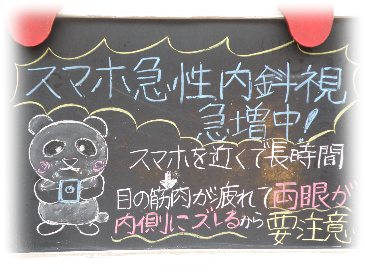 スマホ急性内斜視
急増中!
スマホを近くで長時間
目の筋肉が疲れて両眼が
内側にズレるから要注意